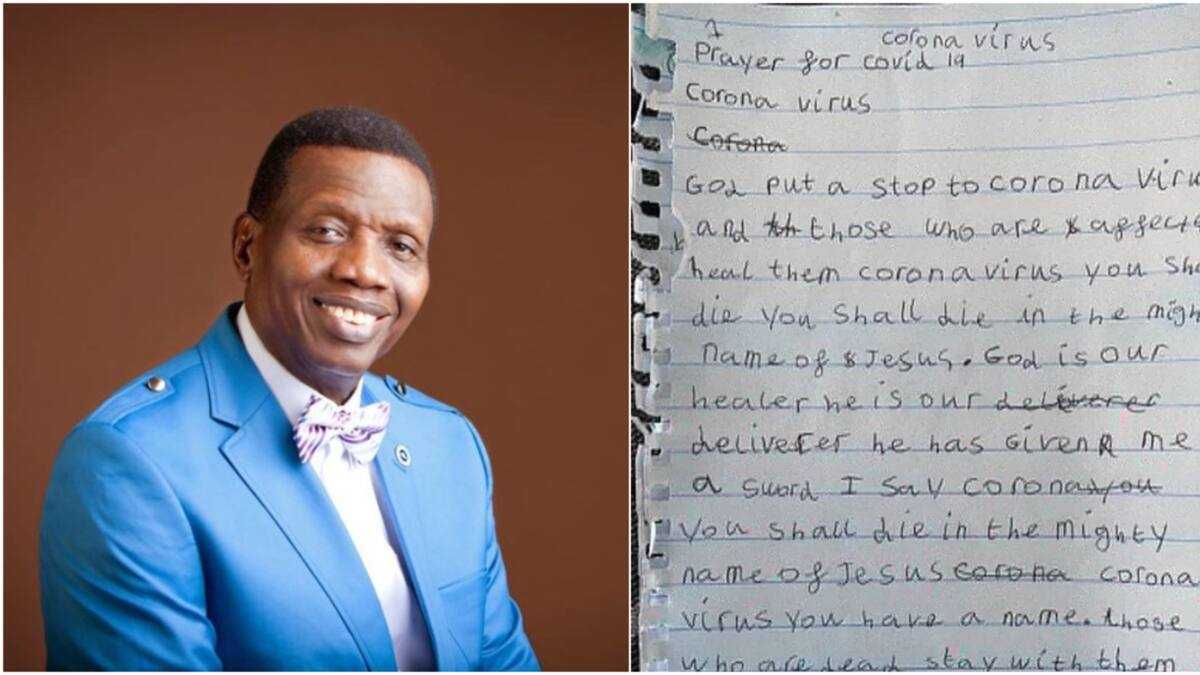 corona virus
Prayer for covid 19
Corona virus
Corona
God put a stop to corona viru
and th those who are affecte
heal them corona virus you sha
die you shall die in the migh
name of Jesus. God is our
healer he is our deliverer
deliverer he has given me
a sword I say corona you
you shall die in the mighty
name of Jesus corona corona
virus you have a name. those
who are dead stay with them